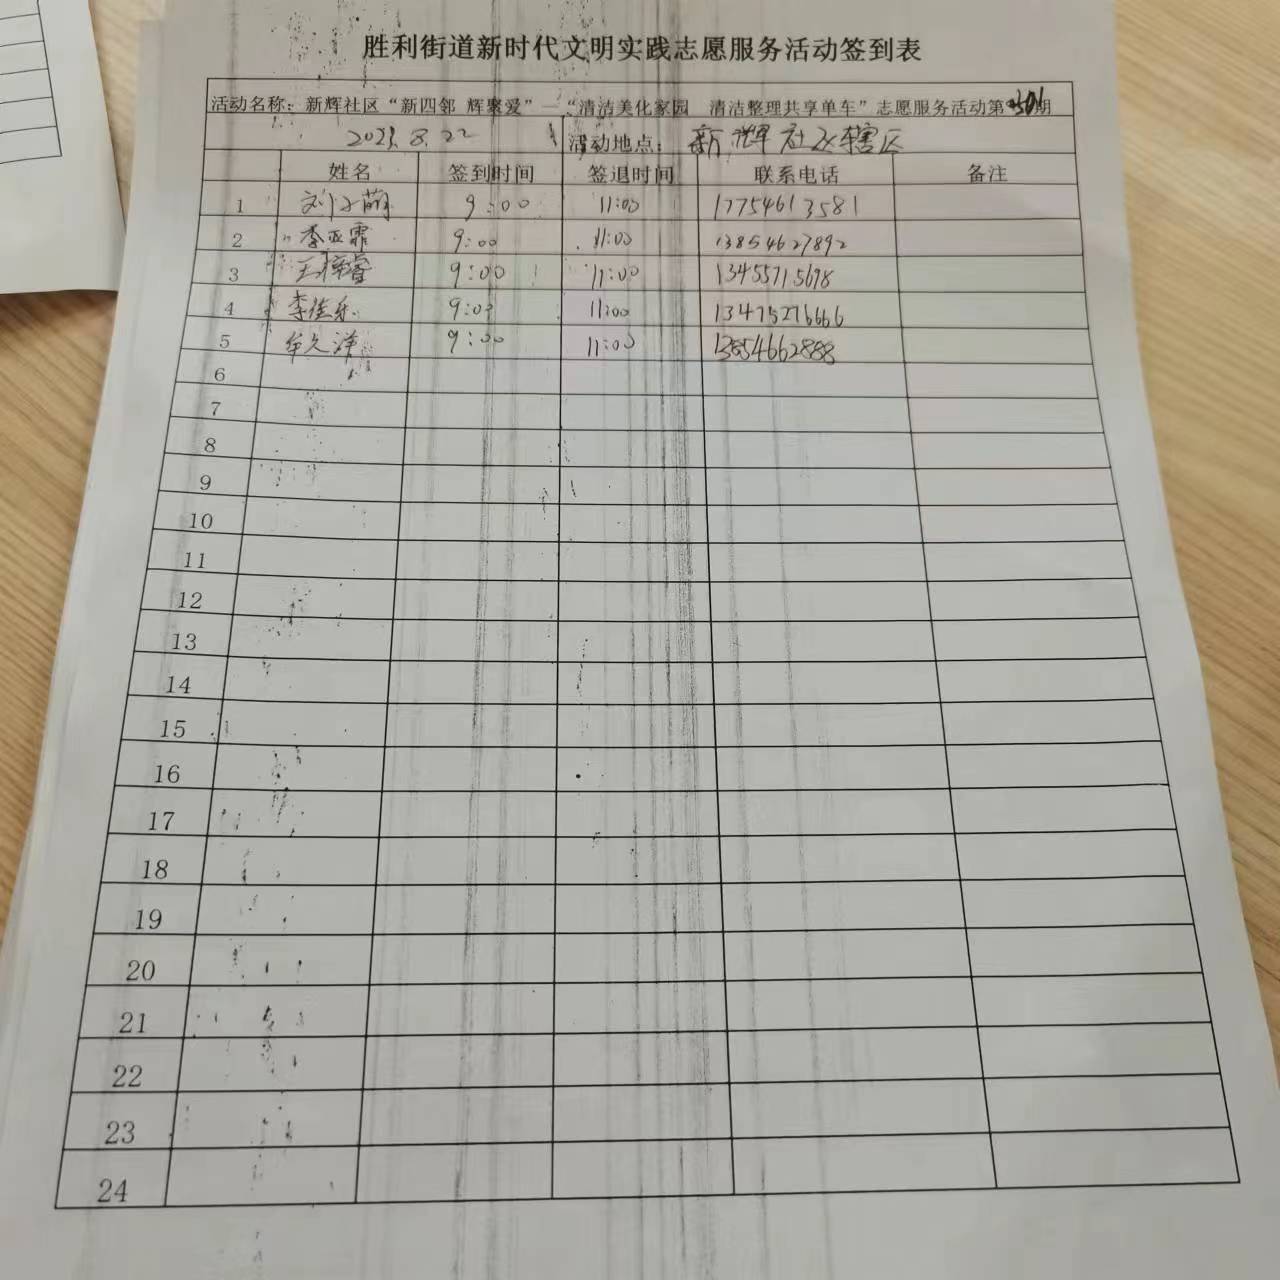 胜利街道新时代文明实践志愿服务活动签到表
活动名称：新辉社区“新四邻 辉聚爱”—“清洁美化家园 清洁整理共享单车”志愿服务活动第 期
8.22 活动地点：新辉社区辖区
姓名 签到时间 签退时间 联系电话 备注
1 9:00 11:00 17754613581
2 李亚霏 9:00 11:00 13854627892
3 王梓睿 9:00 11:00 13455715698
4 李佳乐 9:00 11:00 13475276666
5 牟文洋 9:00 11:00 13854662888
6
7
8
9
10
11
12
13
14
15
16
17
18
19
20
21
22
23
24